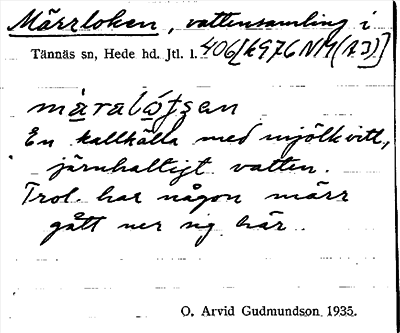 Märrloken, vattensamling i
Tännäs sn, Hede hd. Jtl. l. 406[k976NM(A3)]
màralótjsen
En kallkälla med mjölkvitt,
järnhaltigt vatten.
Trol. har någon märr
gått ner sig här.
O. Arvid Gudmundson 1935.